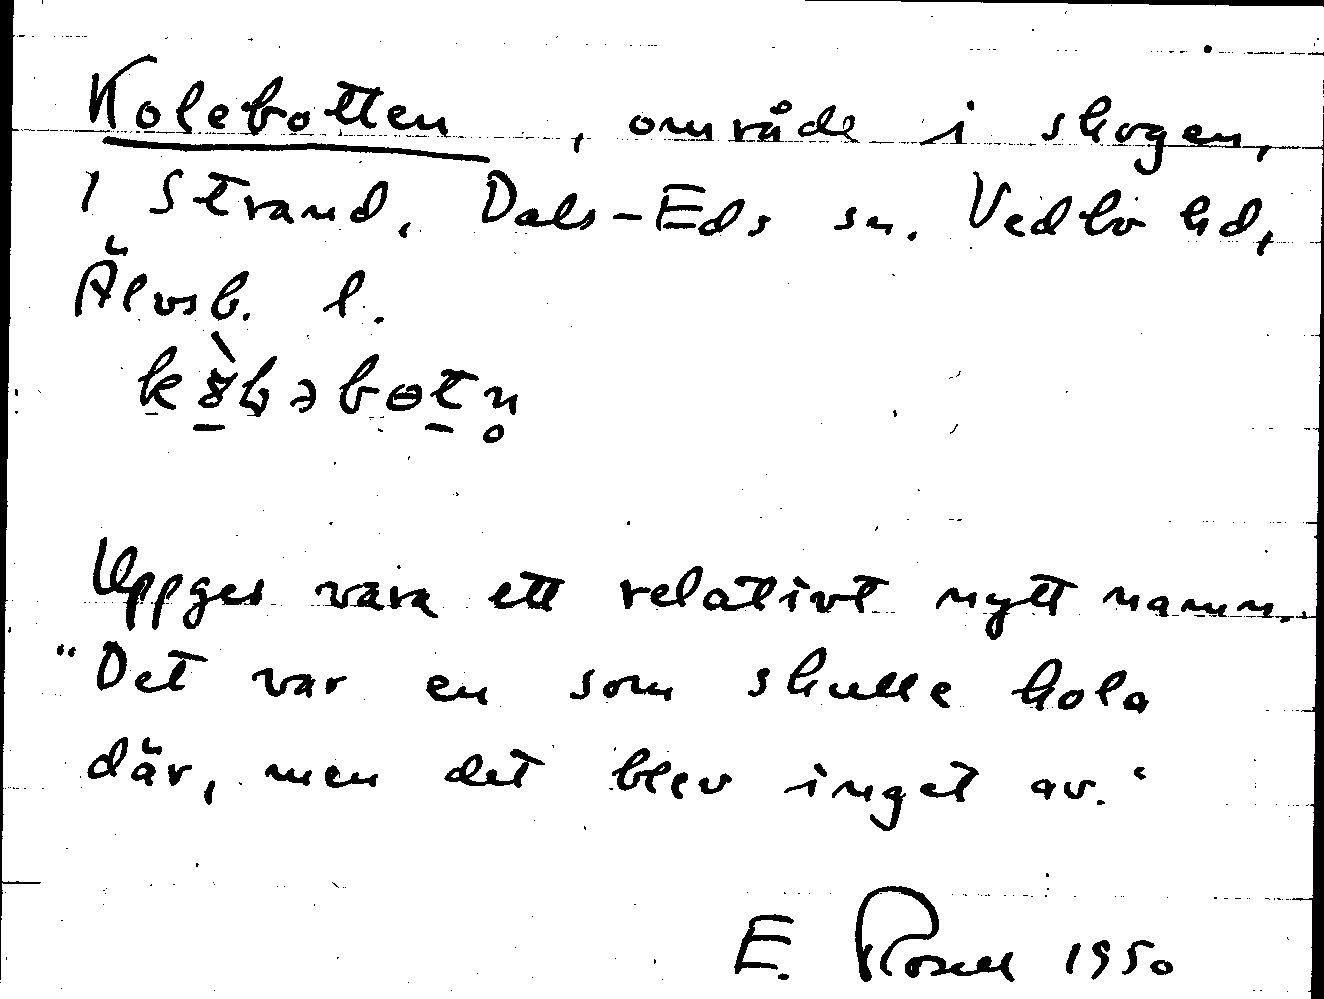 Kolebotten, område i skogen,
1 Strand, Dals-Eds sn. Vedbo hd,
Älvsb. l.
Uppges vara ett relativt nytt namn.
"Det var en som skulle kola
där, men det blev inget av."
E. Rosell 1950